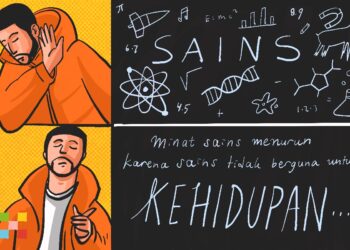 E=mc²
π
6·2
SAINS
√5
1·2·3
Minat sains menurun
karena sains tidak berguna untuk
KEHIDUPAN...